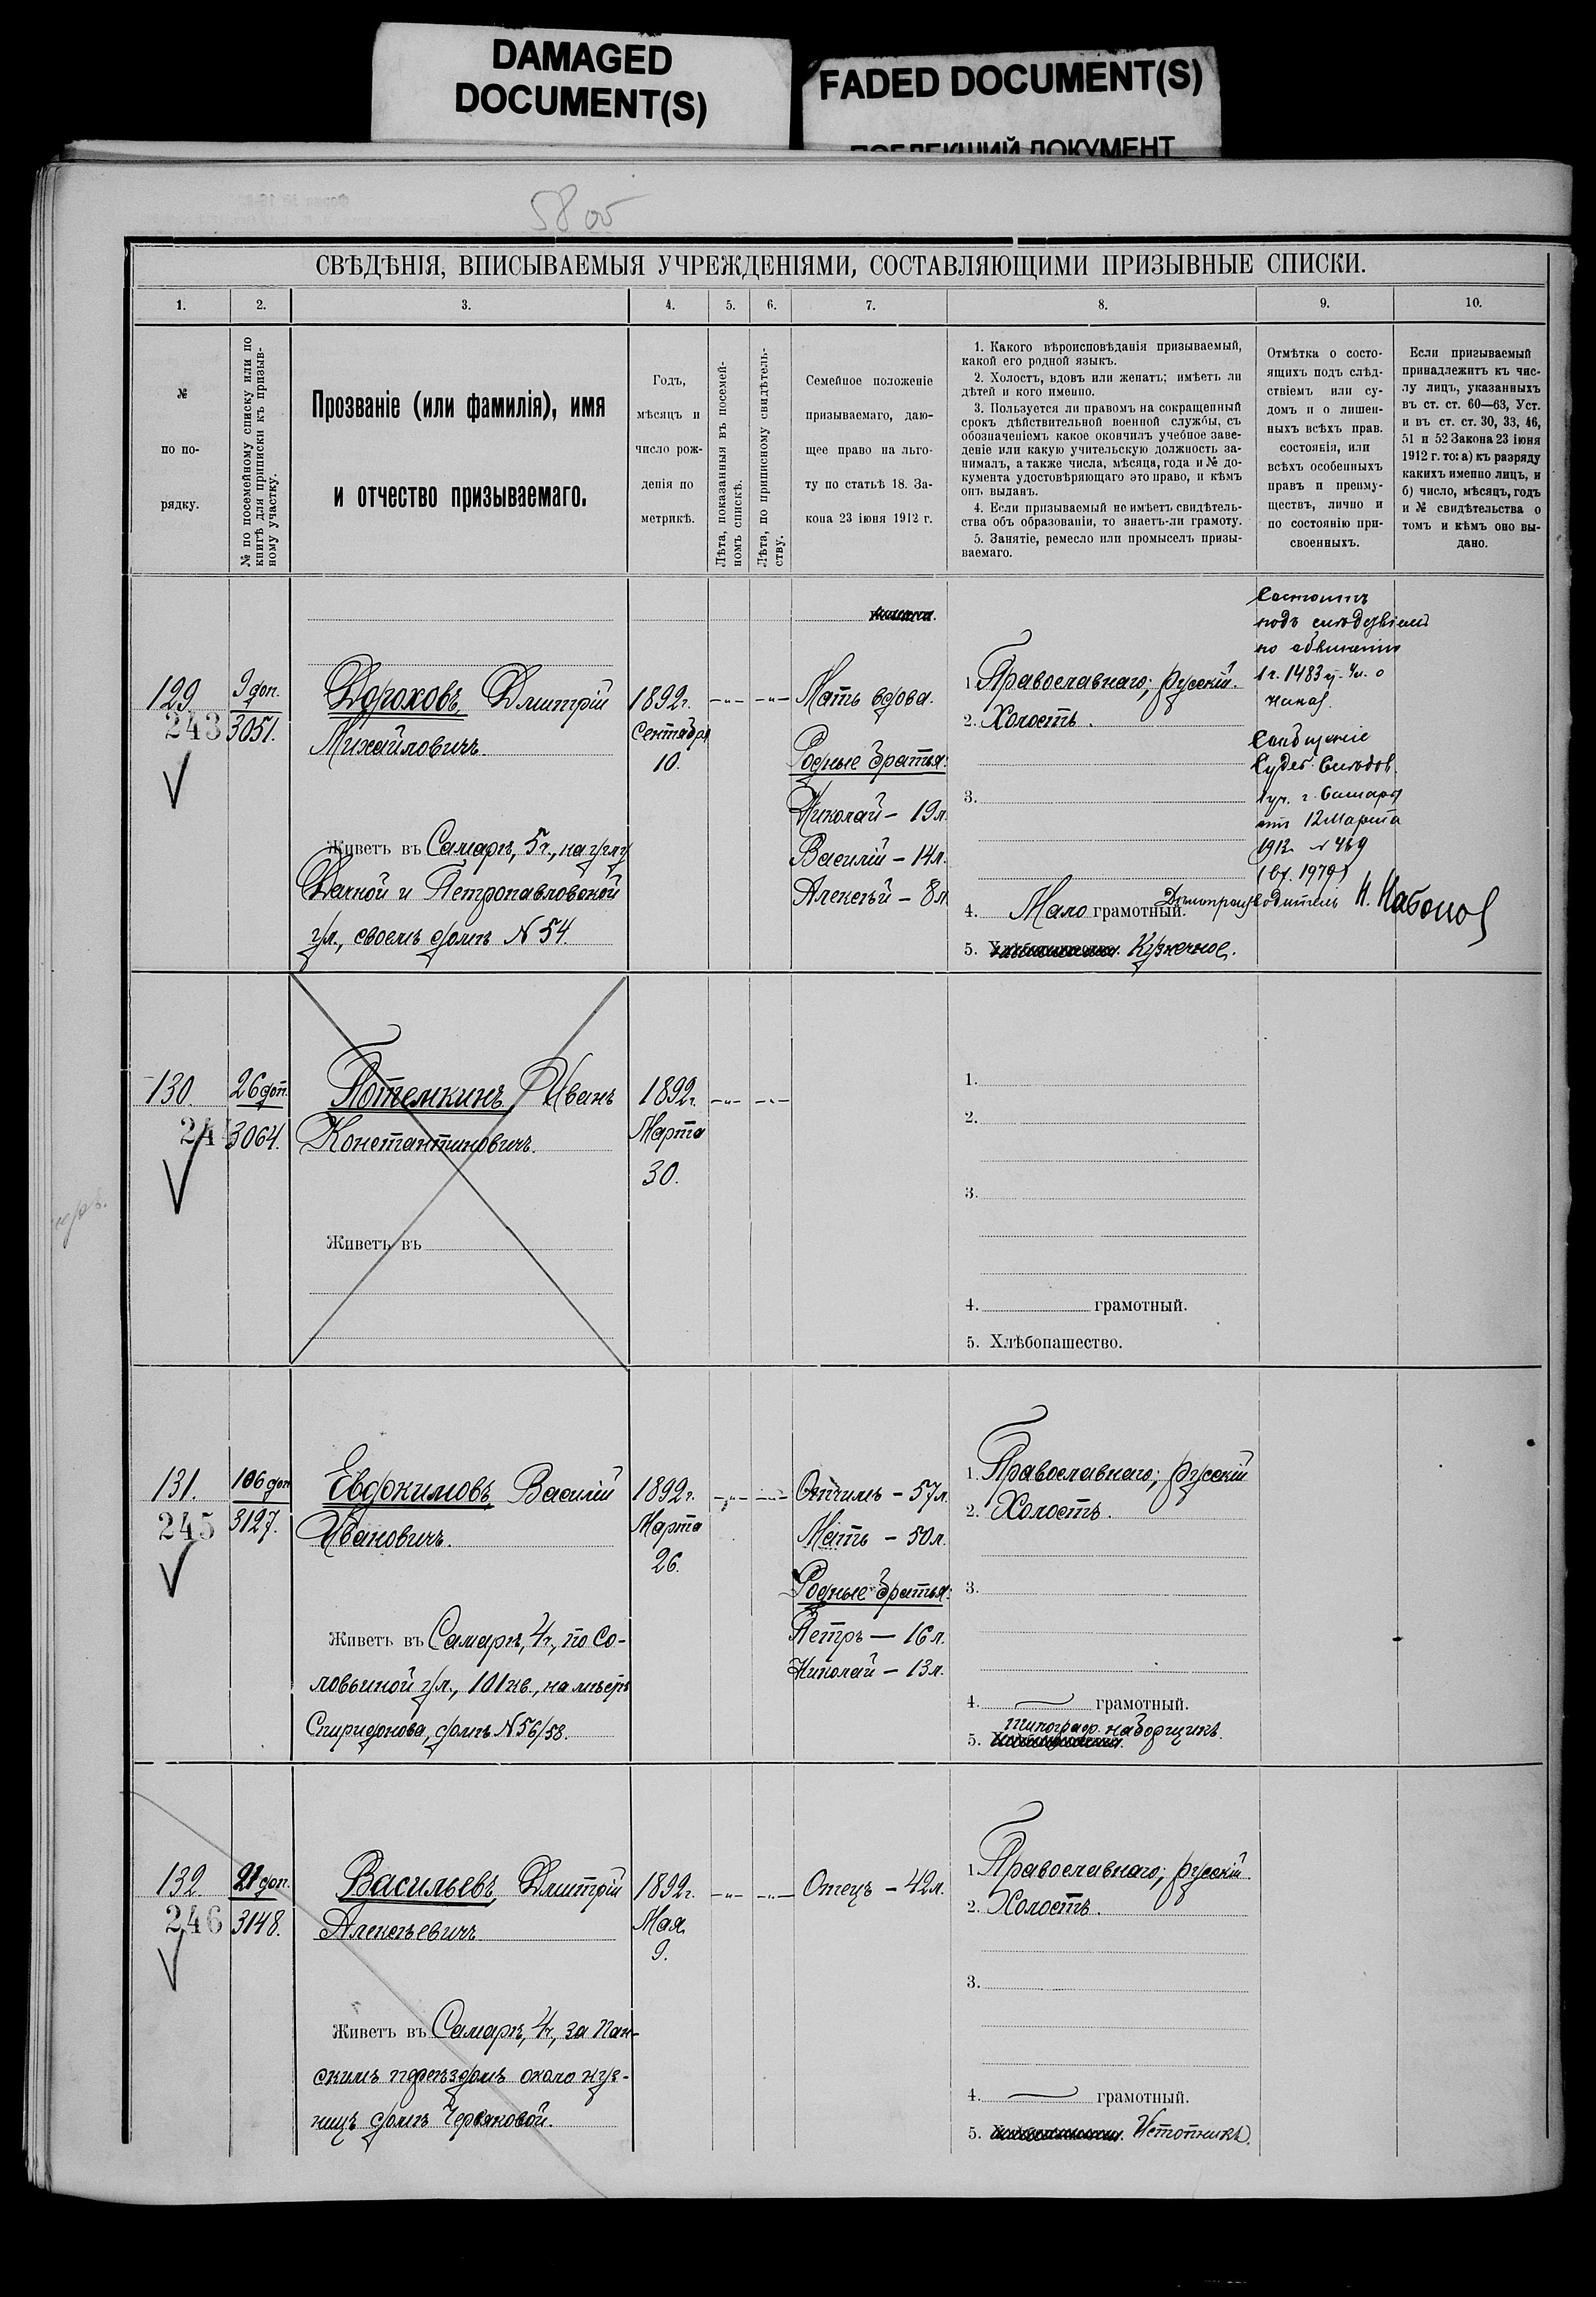 DAMAGED
DOCUMENT(S)
FADED DOCUMENT(S)
ПОБЛЕКШИЙ ДОКУМЕНТ
58 об
СВѢДѢНІЯ, ВПИСЫВАЕМЫЯ УЧРЕЖДЕНІЯМИ, СОСТАВЛЯЮЩИМИ ПРИЗЫВНЫЕ СПИСКИ.
1.
2.
3.
4.
5.
6.
7.
8.
9.
10.
№
по по-
рядку.
№ по посемейному списку или по
книгѣ для приписки къ призыв-
ному участку.
Прозваніе (или фамилія), имя
и отчество призываемаго.
Годъ,
мѣсяцъ и
число рож-
денія по
метрикѣ.
Лѣта, показанныя въ посемей-
номъ спискѣ.
Лѣта, по приписному свидѣтель-
ству.
Семейное положеніе
призываемаго, даю-
щее право на льго-
ту по статьѣ 18. За-
кона 23 іюня 1912 г.
1. Какого вѣроисповѣданія призываемый,
какой его родной языкъ.
2. Холостъ, вдовъ или женатъ; имѣетъ ли
дѣтей и кого именно.
3. Пользуется ли правомъ на сокращенный
срокъ дѣйствительной военной службы, съ
обозначеніемъ какое окончилъ учебное заве-
деніе или какую учительскую должность за-
нималъ, а также числа, мѣсяца, года и № до-
кумента удостовѣряющаго это право, и кѣмъ
онъ выданъ.
4. Если призываемый не имѣетъ свидѣтель-
ства объ образованіи, то знаетъ-ли грамоту.
5. Занятіе, ремесло или промыселъ призы-
ваемаго.
Отмѣтка о состо-
ящихъ подъ слѣд-
ствіемъ или су-
домъ и о лишен-
ныхъ всѣхъ прав.
состоянія, или
всѣхъ особенныхъ
правъ и преиму-
ществъ, лично и
по состоянію при-
своенныхъ.
Если призываемый
принадлежитъ къ чис-
лу лицъ, указанныхъ
въ ст. ст. 60—63, Уст.
и въ ст. ст. 30, 33, 46,
51 и 52 Закона 23 іюня
1912 г. то: а) къ разряду
какихъ именно лицъ, и
б) число, мѣсяцъ, годъ
и № свидѣтельства о
томъ и кѣмъ оно вы-
дано.
129
243
9 доп.
3051.
Дороховъ, Дмитрій
Михайловичъ
Живетъ въ Самарѣ, 5ч., на углу
Дачной и Петропавловской
ул., своемъ домѣ № 54.
1892г.
Сентября
10.
Мать вдова.
Родные братья:
Николай – 19 л.
Василій – 14 л.
Алексѣй – 8 л.
1. Православнаго; русскій.
2. Холостъ.
3.
4. Мало грамотный.
5. Кузнечное.
Состоитъ
подъ слѣдствіемъ
по обвиненію
1 ч. 1483
Сообщеніе
Судеб. Слѣдов.
1 уч. г. Самары
отъ 12 Марта
1912 № 469
(вх. 1979)
Дѣлопроизводитель Н. Набоко
130.
244
26 доп.
3064.
Потемкинъ, Иванъ
Константиновичъ.
Живетъ въ
1892г.
Марта
30.
1.
2.
3.
4. грамотный.
5. Хлѣбопашество.
131.
245
106 доп
3127.
Евдокимовъ, Василій
Ивановичъ.
Живетъ въ Самарѣ, 4ч., по Со-
ловьиной ул., 101 кв., на мѣстѣ
Спиридонова, домъ № 56/58.
1892г.
Марта
26.
Отчимъ – 57 л.
Мать – 50 л.
Родные братья:
Петръ — 16 л.
Николай – 13 л.
1. Православнаго; русскій
2. Холостъ.
3.
4. грамотный.
5. Типограф. наборщикъ.
132.
246
21 доп.
3148.
Васильевъ, Дмитрій
Алексѣевичъ
Живетъ въ Самарѣ, 4ч., за Пан-
скимъ переѣздомъ около куз-
ницъ домъ Червяковой.
1892г.
Мая
9.
Отецъ – 42 л.
1. Православнаго; русскій.
2. Холостъ.
3.
4. грамотный.
5. Истопникъ.